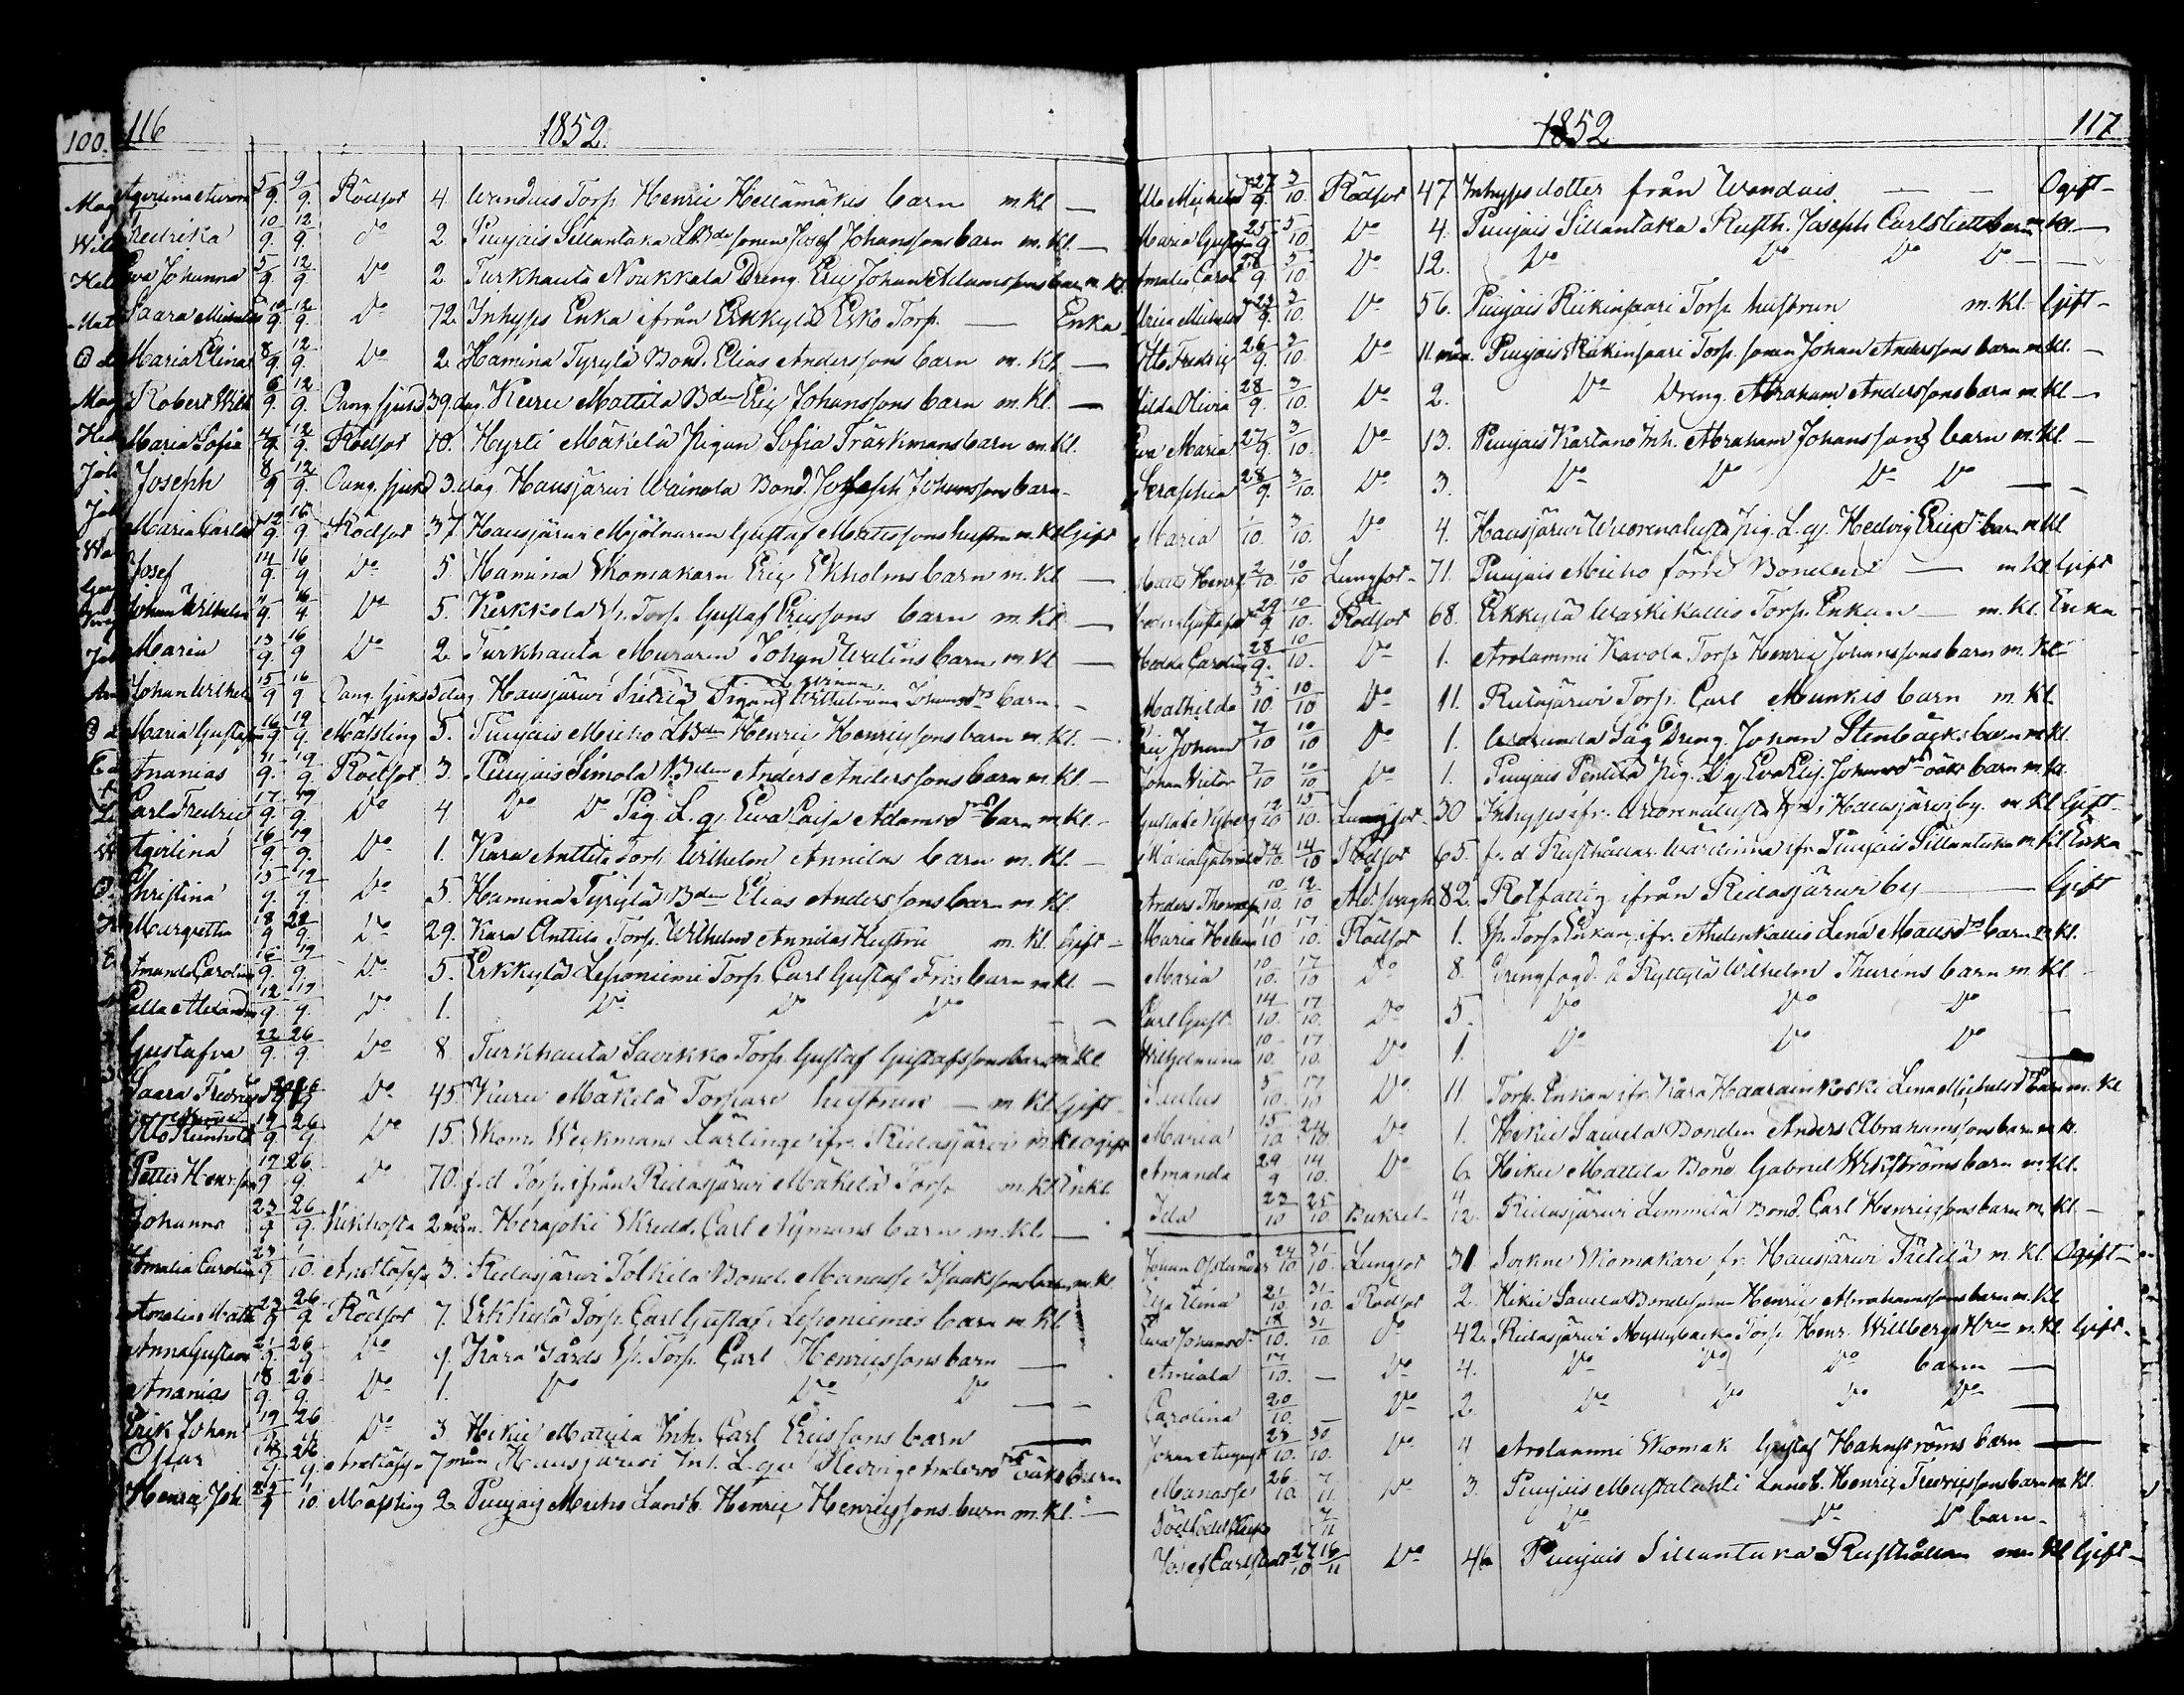 100. 116 1852.
Agirlina Auror 5/9. 9/9. Rödsot 4. Wanduis Torp. Henric Hellämäkis barn m. Kl. —
Fredrika 10/9. 12/9. d:o 2 Puujais Sillantaka Sonen Josef Johanssons barn m. Kl. —
Eva Johanna 5/9. 12/9. D:o 2 Turkhauta Noukkala Dreng. Eric Johan Adamssons barn m. Kl.
Saara 10/9 12/9. D:o 72. Inhyses Enka ifrån Erkkylä Esko Torp. — Enka
Maria Elina 8/9. 12/9. D:o 2. Hamina Tyrylä Bond. Elias Anderssons barn m. Kl. —
Robert Wilh 6/9. 12/9. Oang. sjukd 39. dag. Kuru Mattila Bden Eric Johanssons barn m. Kl. —
Maria Sofia 4/9. 12/9. Rödsot 10. Hyrti Mäkelä Pigan Sofia Träskmans barn m. Kl.
Joseph 8/9 12/9. Oang. sjukd 3. dag. Hausjärwi Wainola Bond. Joseph Johanssons barn —
Maria Carlsd 12/9. 16/9. Rödsot 37. Hausjärwi Mjölnaren Gustaf Mattssons hustru m. Kl. Gift
Josef 14/9. 16/9 D:o 5. Hamina Skomakarn Eric Ekholms barn m. Kl. —
Johan Wilhelm 11/9. 16/9 D:o 5. Kerkkola Sp. Torp. Gustaf Ericssons barn m. Kl. —
Maria 13/9. 16/9 D:o 2. Turkhauta Muraren Johan Walins barn m. Kl. —
Johan Wilhel 15/9 16/9 Oang. sjukd 5 dag. Hausjärwi Pigans Wilhelmina Johansd:rs barn —
Maria Gustafva 16/9 19/9. Mässling 5. Puujais Micko LBden Henric Henricssons barn m. Kl. —
Ananias 11/9. 19/9. Rödsot 3. Puujais Simola Bden Anders Anderssons barn m. Kl. —
Carl Fredric 17/9. 19/9. D:o 4 D:o D:o Pig. L. q. Eva Caisa Adamsd:rs barn m. Kl. —
Agirlina 16/9. 19/9. D:o 1. Kara Anttila Torp. Wilhelm Annilas barn m. Kl. —
Christina 15/9. 19/9. D:o 5. Hamina Tyrylä Bden Elias Anderssons barn m. Kl.
Margretha 18/9 22/9. D:o 29. Kara Anttila Torp. Wilhelm Annilas Hustru m. Kl. Gift —
Amanda Carolina 16/9. 19/9. D:o 5. Erkkylä Leponiemi Torp. Carl Gustaf Fris barn m. Kl. —
Alexandra 12/9. 17/9. D:o 1. D:o D:o D:o — —
Gustafva 22/9. 26/9. D:o 8 Turkhauta Savikko Torp. Gustaf Gustafssons barn m. Kl
Saara Fredricsd 26/9 D:o 45. Kuru Mäkelä Torpare hustrun — m. Kl. Gift —
Otto Reinhold 19/9. 26/9 D:o 15. Skom. Weckmans Lärlinge ifr. Ridasjärvi m. Kl. ogift
Petter Henrsson 19/9 26/9. D:o 70. f. d. Torp. ifrån Ridasjärvi Mäkelä Torp m. Kl. Enkl.
Johanna 23/9 26/9. Kikhosta 2 mån. Herajoki Skredd. Carl Nymans barn m. Kl. —
Amalia Carolina 23/9. 1/10. Andtäppa 3. Ridasjärwi Tolkila Bond. Manasse Isaakssons barn m. Kl.
Amalia Math 23/9 26/9 Rödsot 7. Erkkylä Torp. Carl Gustaf Leponiemes barn m. Kl
Anna Gustava 21/9. 26/9 D:o 9. Kara Gårds Sp. Torp. Carl Henricssons barn —
Ananias 18/9. 26/9. D:o 1. D:o D:o D:o — —
Erik Johan 19/9 26/9 D:o 3. Hikie Mattila Inh. Carl Ericssons barn —
Oskar 18/9. 26/9. Andtäppa 7 mån Hausjärwi Inh. L. qv. Hedvig Andersd:rs oäkta barn
Henric Joh 27/9 1/10. Mässling 2. Puujais Micko Landb. Henric Henricssons barn m. Kl. —
1852 117
Ulla Michelsd 27/9. 3/10. Rödsot 47 Inhyses dotter från Wanduis. — — Ogift —
Maria Gustava 25/9 5/10 D:o 4. Puujais Sillantaka Rusth. Joseph Carlstedts barn m. Kl. —
Amalia Carol 28/9. 3/10. D:o 12. D:o D:o D:o D:o — —
Michelsd 24/9. 3/10. D:o 56. Puujais Riikinsaari Torp. hustrun m. Kl. Gift —
Otto Fredric 26/9. 3/10. D:o 11 mån. Puujais Riikinsaari Torp. sonen Johan Anderssons barn m. Kl. —
Hilda Olivia 28/9. 3/10. D:o 2. D:o Dreng. Abraham Anderssons barn m. Kl —
Eva Maria 27/9. 3/10. D:o 13. Puujais Kartano Inh. Abraham Johanssons barn m. Kl —
Seraphia 28/9. 3/10. D:o 3. D:o D:o D:o D:o — —
Maria 1/10. 3/10. D:o 4. Hausjärwi Wuorenalusta Pig. L. q. Hedvig Ericsd:rs barn m Kl
Matts Henr 2/10. 10/10 Lungsot — 71. Puujais Micko förre Bonden — m Kl Gift
Gustafsd 29/9 10/10. Rödsot 68. Erkkylä Waskikallio Torp. Enkan — m. Kl. Enka
Hedda Carolina 28/9. 10/10. D:o 1. Arolammi Kavola Torp. Henric Johanssons barn m. Kl
Mathilda 3/10. 10/10 D:o 11. Ridasjärwi Torp. Carl Munkis barn m. Kl.
Eric Johan 7/10 10/10 D:o 1. Såg Dreng. Johan Stenbäcks barn m. Kl.
Johan Victor 7/10 10/10 D:o 1. Puujais Pentilä Pig. L. q. Eva Johansd:rs oäkt barn m. Kl.
Gustafs Nyberg 12/10 15/10. Lungsot — 30 Inhyses fr. Wuorenalusta fr. Hausjärwi by. m. Kl Gift —
Maria Gabrielsd 14/10 Rödsot 65. f. d. Rusthållar. Wärdinna ifr. Puujais Sillantaka m. Kl. Enka
Anders Thomass 10/10. 12/10 Ald. svagh. 82. Rotfattig ifrån Ridasjärwi by — Gift
Maria Helena 11/10 17/10. Rödsot 1. Sp. Torp Enkan ifr. Ahdenkallio Lena Mattsd:rs barn m. Kl.
Maria 10/10. 17/10 D:o 8. Drengfogd. å Ryttylä Wilhelm Thurens barn m. Kl. —
Carl Gust. 14/10. 17/10. D:o 5. D:o D:o D:o —
Wilhelmina 10/10. 17/10. D:o 1. D:o D:o D:o —
Paulus 5/10. 17/10 D:o 11 Torp. Enkan ifr. Kara Haarainkoski Lena Michelsd:rs barn m. Kl
Maria 15/10 24/10. D:o 1. Hikie Sawela Bonden Anders Abrahamssons barn m. Kl.
Amanda 29/9 14/10. D:o 6 Hikie Mattila Bond Gabriel Wikströms barn m. Kl.
Ida 23/10 25/10. Bukref. 4/12. Ridasjärwi Lemmilä Bond. Carl Henricssons barn m. Kl. —
Johan 24/10 31/10. Lungsot 31 Sockne Skomakare fr. Hausjärwi m. Kl. Ogift —
Elina 21/10. 31/10. Rödsot 2. Hikie Sawela Bondesonen Henric Abrahamssons barn m. Kl
Eva Johansd:r 18/10. 31/10. D:o 42. Ridasjärwi Myllybacka Torp. Henr. Willbergs Hru m. Kl. Gift —
Amiala 17/10. — D:o 4. D:o D:o D:o barn —
Carolina 20/10. D:o 2 D:o D:o D:o D:o —
Johan August 23/10. 30/10. D:o 4 Arolammi Skomak Gustaf Hahnströms barn —
Manasse 26/10. 7/11. D:o 3. Puujais Mustalahti Landb. Henric Fredricssons barn m. Kl.
Dödfödd flicka 7/11 D:o D:o D:o barn —
Josef Carlstedt 27/10 16/11 D:o 46 Puujais Sillantaka Rusthållare m. Kl Gift —